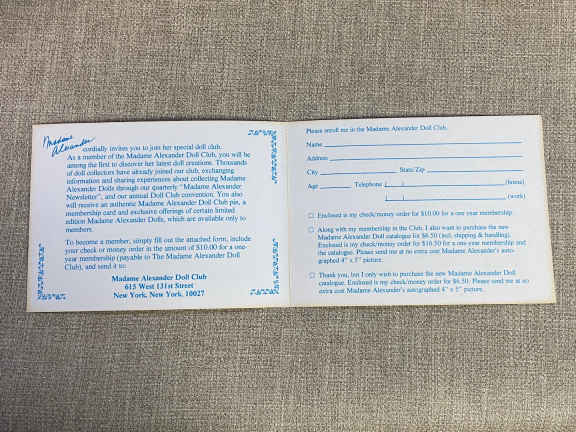 Madame
Alexander
cordially invites you to join her special doll club.
As a member of the Madame Alexander Doll Club, you will be
among the first to discover her latest doll creations. Thousands
of doll collectors have already joined our club, exchanging
information and sharing experiences about collecting Madame
Alexander Dolls through our quarterly "Madame Alexander
Newsletter", and our annual Doll Club convention. You also
will receive an authentic Madame Alexander Doll Club pin, a
membership card and exclusive offerings of certain limited
edition Madame Alexander Dolls, which are available only to
members.
To become a member, simply fill out the attached form, include
your check or money order in the amount of $10.00 for a one-
year membership (payable to The Madame Alexander Doll
Club), and send it to:
Madame Alexander Doll Club
615 West 131st Street
New York, New York, 10027
Please enroll me in the Madame Alexander Doll Club.
Name
Address
City State/Zip
Age Telephone ( ) (home)
( ) (work)
Enclosed is my check/money order for $10.00 for a one year membership.
Along with my membership in the Club, I also want to purchase the new
Madame Alexander Doll catalogue for $6.50 (incl. shipping & handling).
Enclosed is my check/money order for $16.50 for a one year membership and
the catalogue. Please send me at no extra cost Madame Alexander's auto-
graphed 4" x 5" picture.
Thank you, but I only wish to purchase the new Madame Alexander Doll
catalogue. Enclosed is my check/money order for $6.50. Please send me at no
extra cost Madame Alexander's autographed 4" x 5" picture.